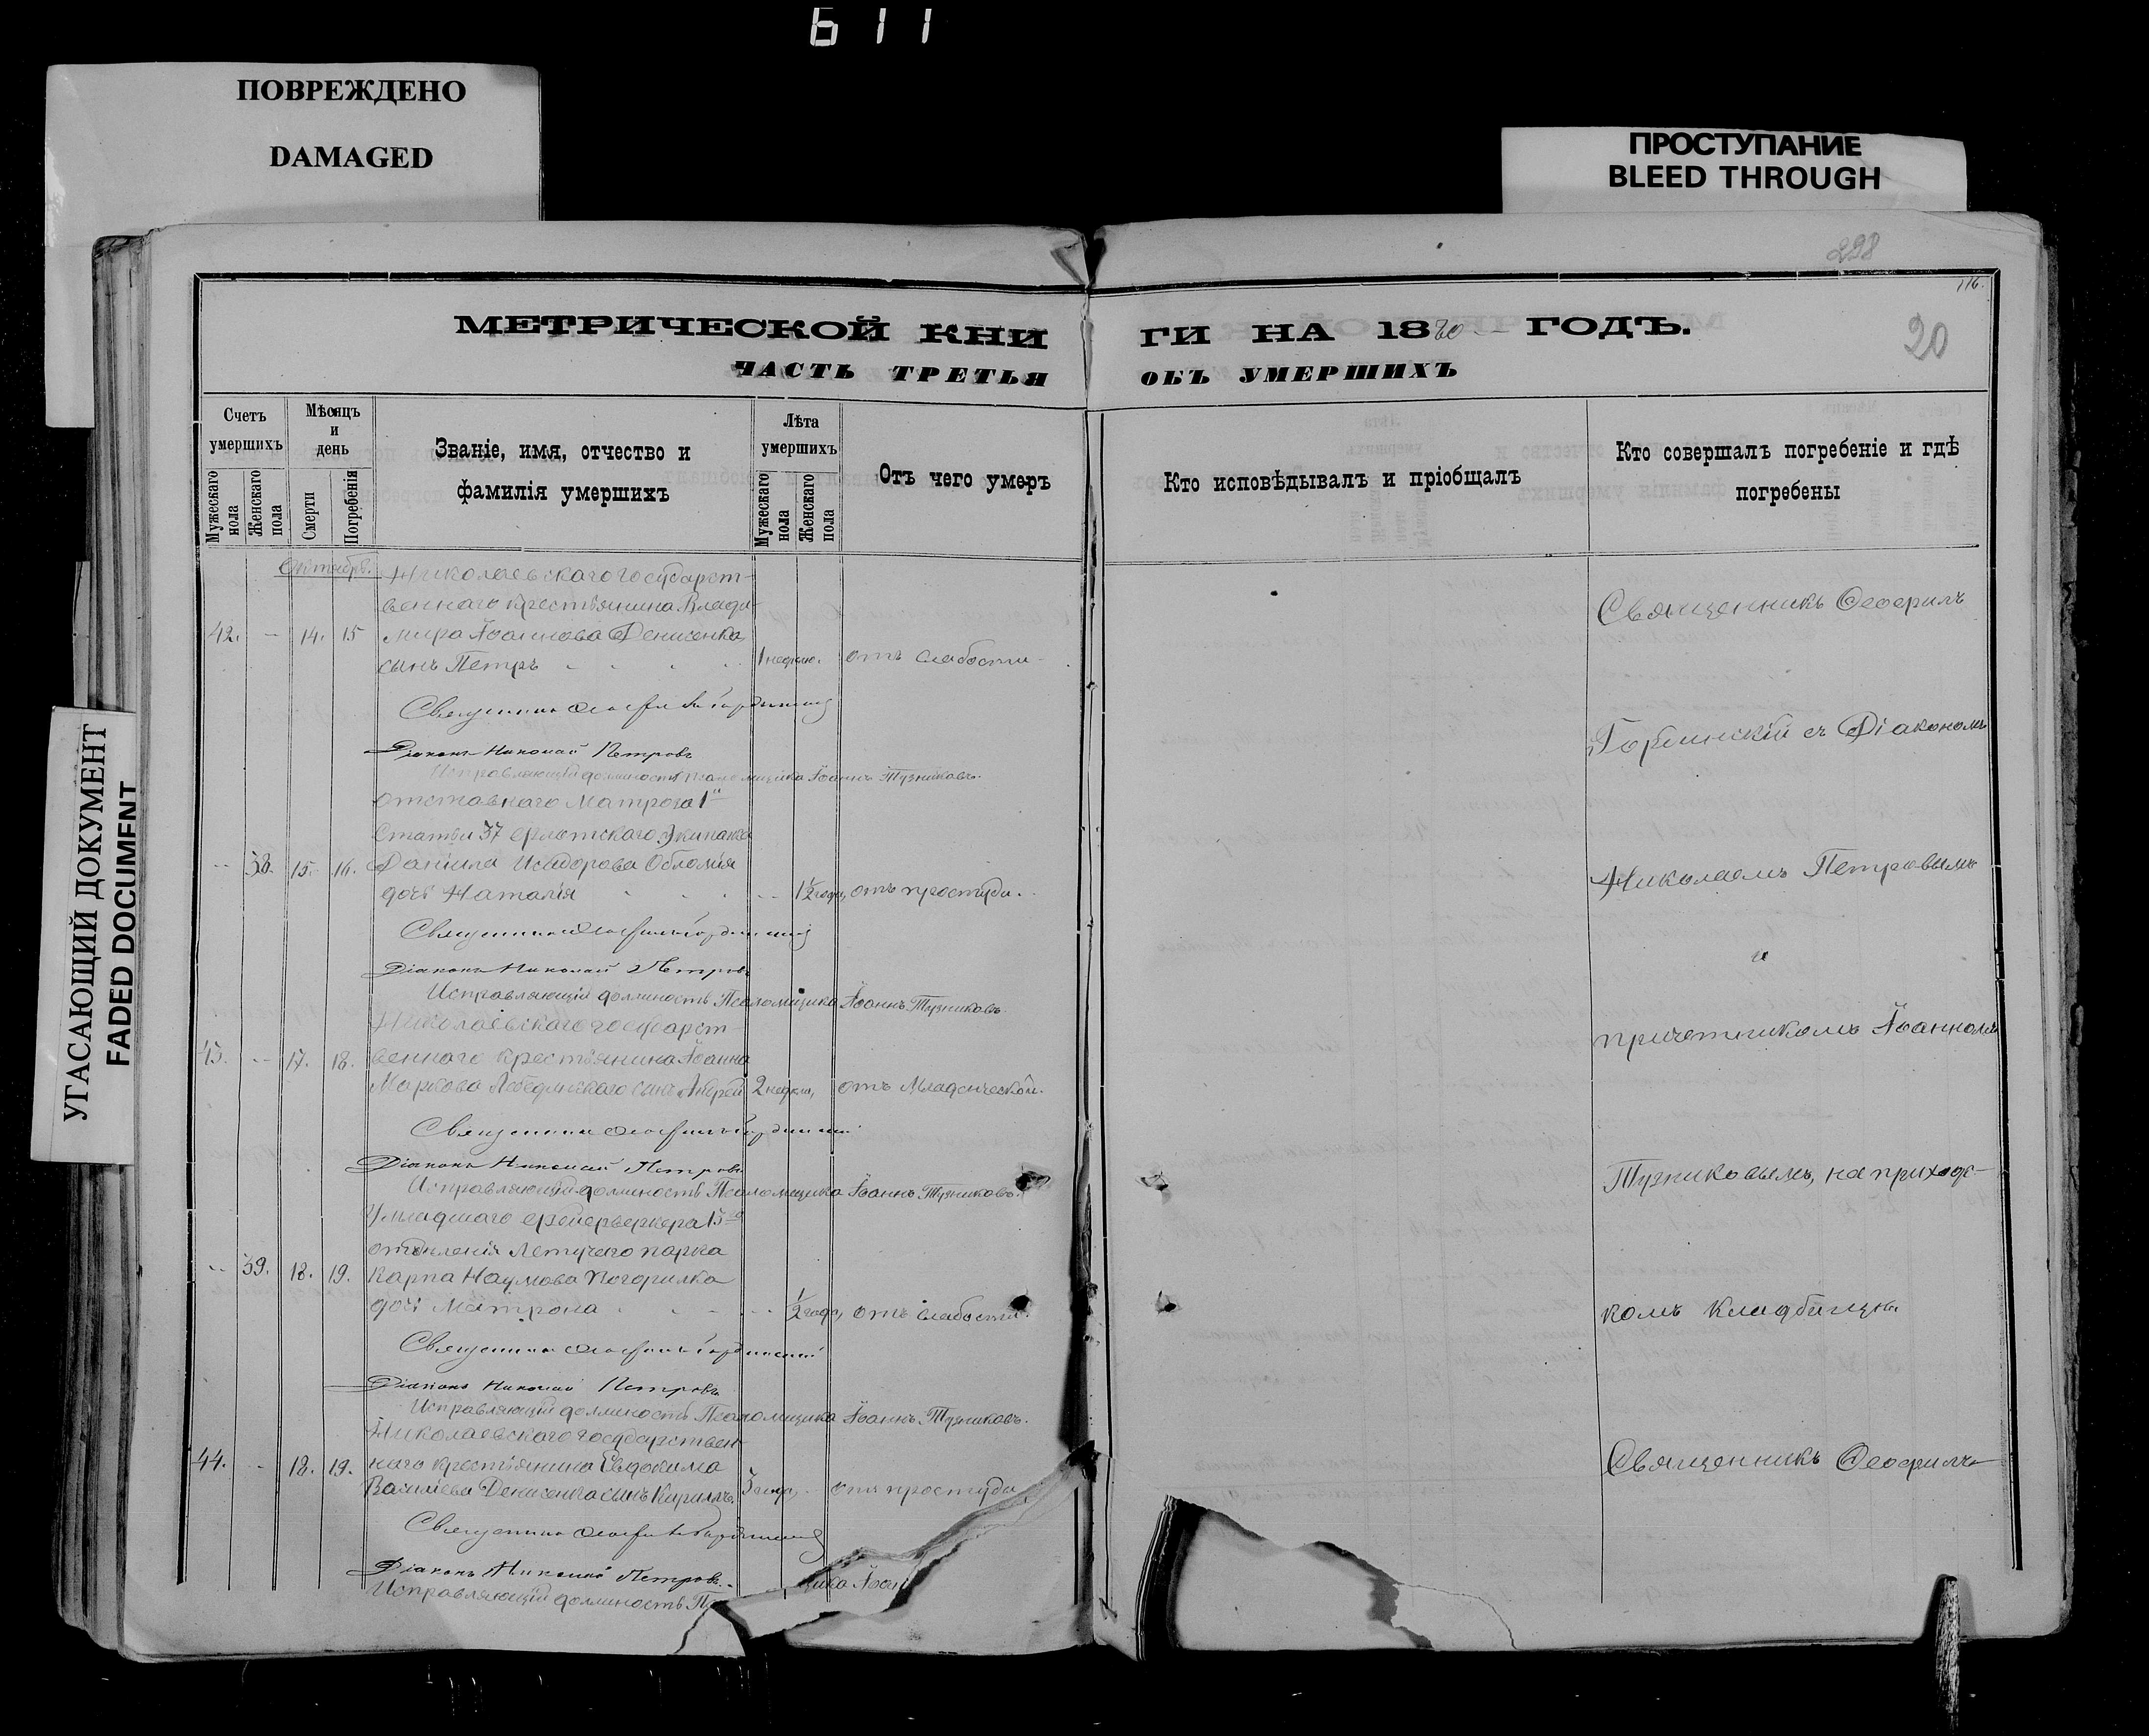 611
ПОВРЕЖДЕНО
DAMAGED
ПРОСТУПАНИЕ
BLEED THROUGH
УГАСАЮЩИЙ ДОКУМЕНТ
FADED DOCUMENT
298
116.
20
МЕТРИЧЕСКОЙ КНИ
ГИ НА 1880 ГОДЪ.
ЧАСТЬ ТРЕТЬЯ
ОБЪ УМЕРШИХЪ
Счетъ умершихъ
Мужескаго пола
Женскаго пола
Мѣсяцъ и день
Смерти
Погребенія
Званіе, имя, отчество и
фамилія умершихъ
Лѣта умершихъ
Мужескаго пола
Женскаго пола
Отъ чего умеръ
Кто исповѣдывалъ и пріобщалъ
Кто совершалъ погребеніе и гдѣ
погребены
Октябрь.
Николаевскаго государст-
веннаго крестьянина Влади-
42. -- 14. 15 мира Іоаннова Денисенка
сынъ Петръ 1 недѣлю. отъ слабости
Священникъ Ѳеофилъ
Діаконъ Николай Петровъ
Исправляющій должность Псаломщика Іоаннъ Тузниковъ.
отставнаго Матроса 1й
Статьи 37 флотскаго Экипажа
-- 38. 15. 16. Даніила Исидорова Обломія
дочь Наталія 1½ года, отъ простуды.
Священникъ Ѳеофилъ
Діаконъ Николай Петровъ
Исправляющій должность Псаломщика Іоаннъ Тузниковъ.
Николаевскаго государст-
43. -- 17. 18. веннаго крестьянина Іоанна
Маркова сынъ Андрей 2 недѣли, отъ Младенческой.
Священникъ Ѳеофилъ
Діаконъ Николай Петровъ
Исправляющій должность Псаломщика Іоаннъ Тузниковъ.
Младшаго фейерверкера 13го
отдѣленія Летучаго парка
-- 39. 18. 19. Карпа Наумова Погорилка
дочь Матрона ½ года, отъ слабости.
Священникъ Ѳеофилъ
Діаконъ Николай Петровъ
Исправляющій должность Псаломщика Іоаннъ Тузниковъ.
Николаевскаго государствен-
44. -- 18. 19. наго крестьянина Евдокима
Василіева Денисенка сынъ Кириллъ. 3 года, отъ простуды
Священникъ Ѳеофилъ
Діаконъ Николай Петровъ.
Исправляющій должность Пс щика Іоан
Священникъ Ѳеофилъ
съ Діакономъ
Николаемъ Петровымъ
и
причетникомъ Іоанномъ
Тузниковымъ, на приходс-
комъ кладбищѣ.
Священникъ Ѳеофилъ